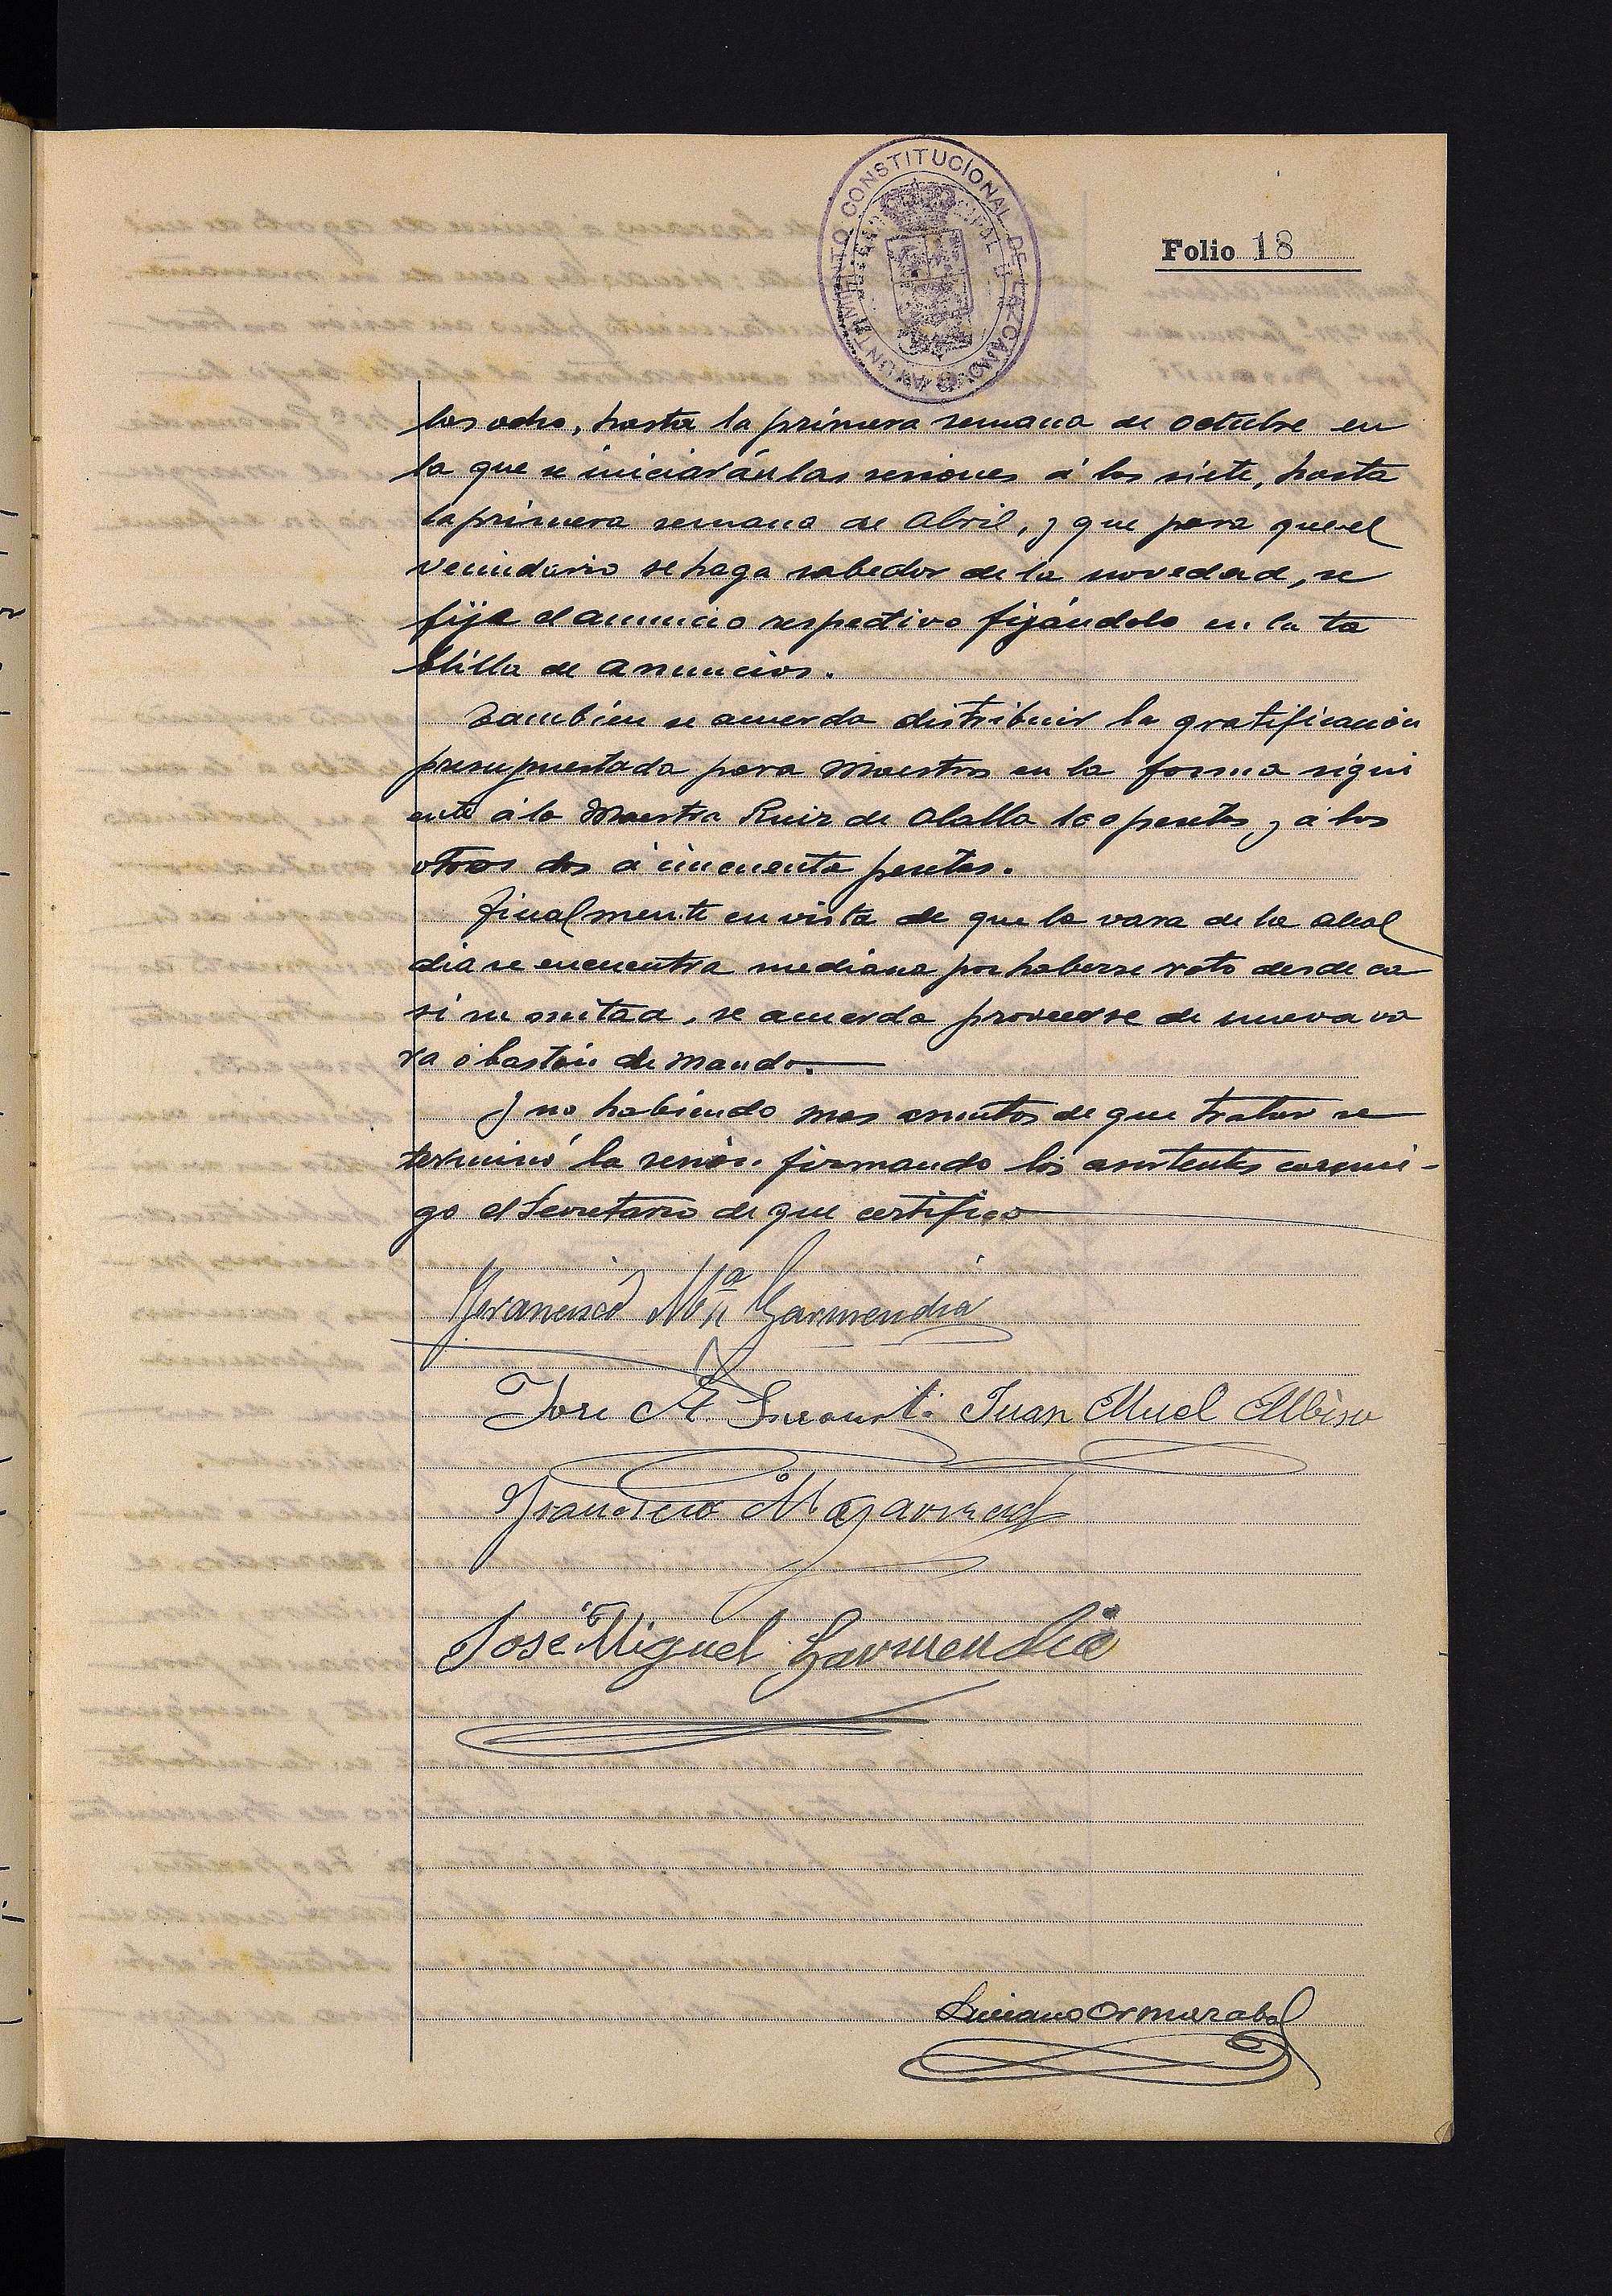 AYUNTAMIENTO CONSTITUCIONAL DE LAZCANO
Folio 18
las ocho, hasta la primera semana de octubre en
la que se iniciarán las sesiones á las siete, hasta
la primera semana de Abril, y que para que el
vecindario se haga sabedor de la novedad, se
fije el anuncio respectivo fijándolo en la ta
blilla de anuncios.
Tambien se acuerda distribuir la gratificación
presupuestada para Maestros en la forma sigui
ente á la Maestra Ruiz de Olalla 100 pesetas y á los
otros dos á cincuenta pesetas.
Finalmente en vista de que la vara de la Alcal
dia se encuentra mediana por haberse roto desde ca
si su mitad, se acuerda proveerse de nueva va
ra ó bastón de mando.
Y no habiendo mas asuntos de que tratar se
terminó la sesión firmando los asistentes conmi-
go el Secretario de que certifico
Francisco Mª Garmendia
Jose A. Juan Muel Albisu
Francisco Garmend
José Miguel Garmendia
Luciano Ormazabal